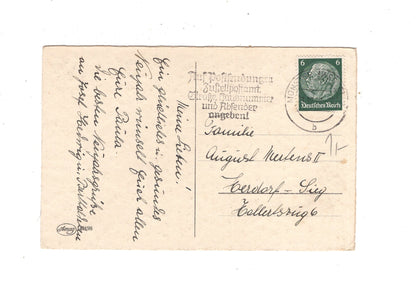 Meine Lieben!
Ein glückliches u. gesundes
Neujahr wünscht Euch allen
Eure Paula.
Die besten Neujahrsgrüße
an Josef Hedwig u.
Auf Postsendungen
Zustellpostamt
Straße Hausnummer
und Absender
angeben!
6 6
Deutsches Reich
b
Familie
August Mertens II
Herdorf-Sieg
Hellertszug 6